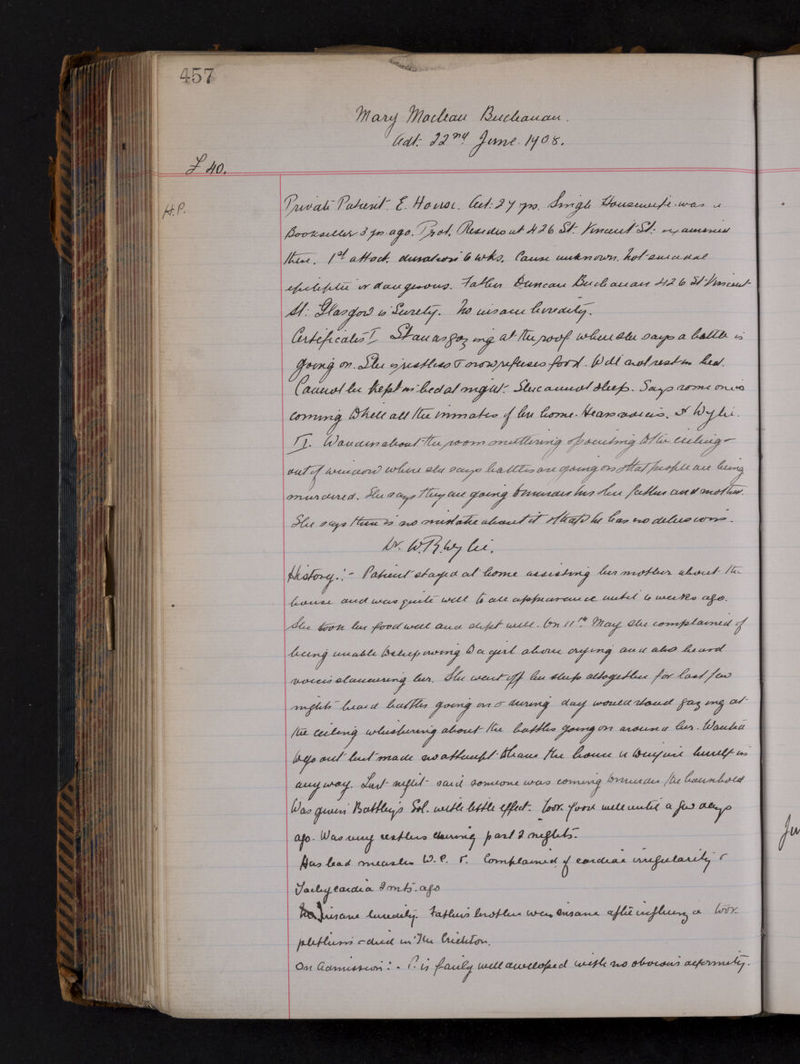 457
Mary Maclean Buchanan.
Adt. 22nd June 1908.
£40.
H.P.
Private Patient. E. House. Aet: 27 yrs. Single Housewife. was a
Bookseller 3 yrs ago. Prot. Resides at 426 St. Vincent St: examined
there. 1st attack, duration 6 wks. Cause unknown. not suicidal
epileptic or dangerous. Father Duncan Buchanan 426 St Vincent
St: Glasgow is Surety. No insane heredity.
Certificates I. Stands gazing at the roof where she says a battle is
going on. She is restless & now refuses food. Will not rest in bed.
Cannot be kept in bed at night. She cannot sleep. Says some one is
coming to kill all the inmates of her home. Hears voices. Wylie.
II. Wanders about the room muttering & pointing to the ceiling &
out of window where she says battles are going on & that people are being
murdered. She says they are going to murder her father and mother.
She says there is no mistake about it & that she has no delusions.
Dr. W.R. Wylie.
History:- Patient stayed at home assisting her mother about the
house and was quite well to all appearance until 6 weeks ago.
She took her food well and slept well. On 11th May she complained of
being unable to sleep owing to a girl above crying and also heard
voices slandering her. She went off her sleep altogether for last few
nights heard battles going on & during day would stand gazing at
the ceiling whispering about the battles going on around her. Wanted
to go out but made no attempt to leave the house or to injure herself in
any way. Last night said someone was coming to murder the household
Was given Battley's Sol. with little effect. Took food well until a few days
ago. Was very restless during past 2 nights.
Has had measles W.C. Complained of cardiac irregularity &
Tachycardia mts. ago
No Insane heredity. Father's brother was insane after influenza took
& died in The Crichton.
On Admission:- P. is fairly well developed with no obvious deformity.